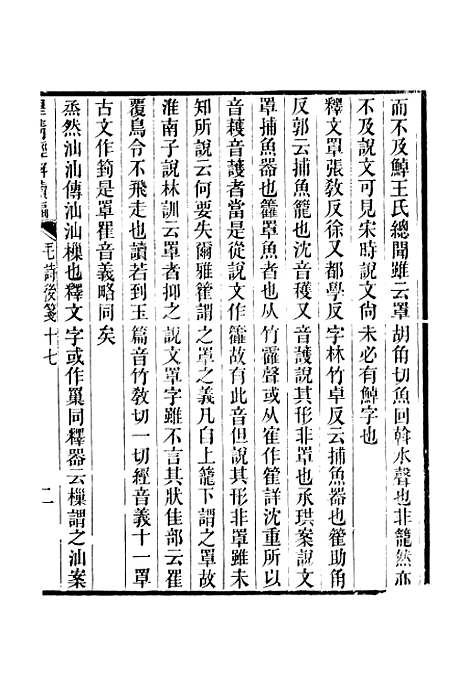 而不及鯙王氏總聞雖云罩胡角切魚回斡水聲也非籠然亦
不及說文可見宋時說文尙未必有鯙字也
釋文罩張敎反徐又都學反字林竹卓反云捕魚器也篧助角
反郭云捕魚籠也沈音穫又音護說其形非罩也承珙案說文
罩捕魚器也籱罩魚者也从竹靃聲或从隺作篧詳沈重所以
音穫音護者當是從說文作籱故有此音但說其形非罩雖未
知所說云何要失爾雅篧謂之罩之義凡自上籠下謂之罩故
淮南子說林訓云罩者抑之說文罩字雖不言其狀隹部云䍜
覆鳥令不飛走也讀若到玉篇音竹敎切一切經音義十一罩
古文作䈇是罩䍜音義略同矣
烝然汕汕傳汕汕樔也釋文字或作巢同釋器云樔謂之汕案
皇淸經解續編
毛詩後箋十七
二